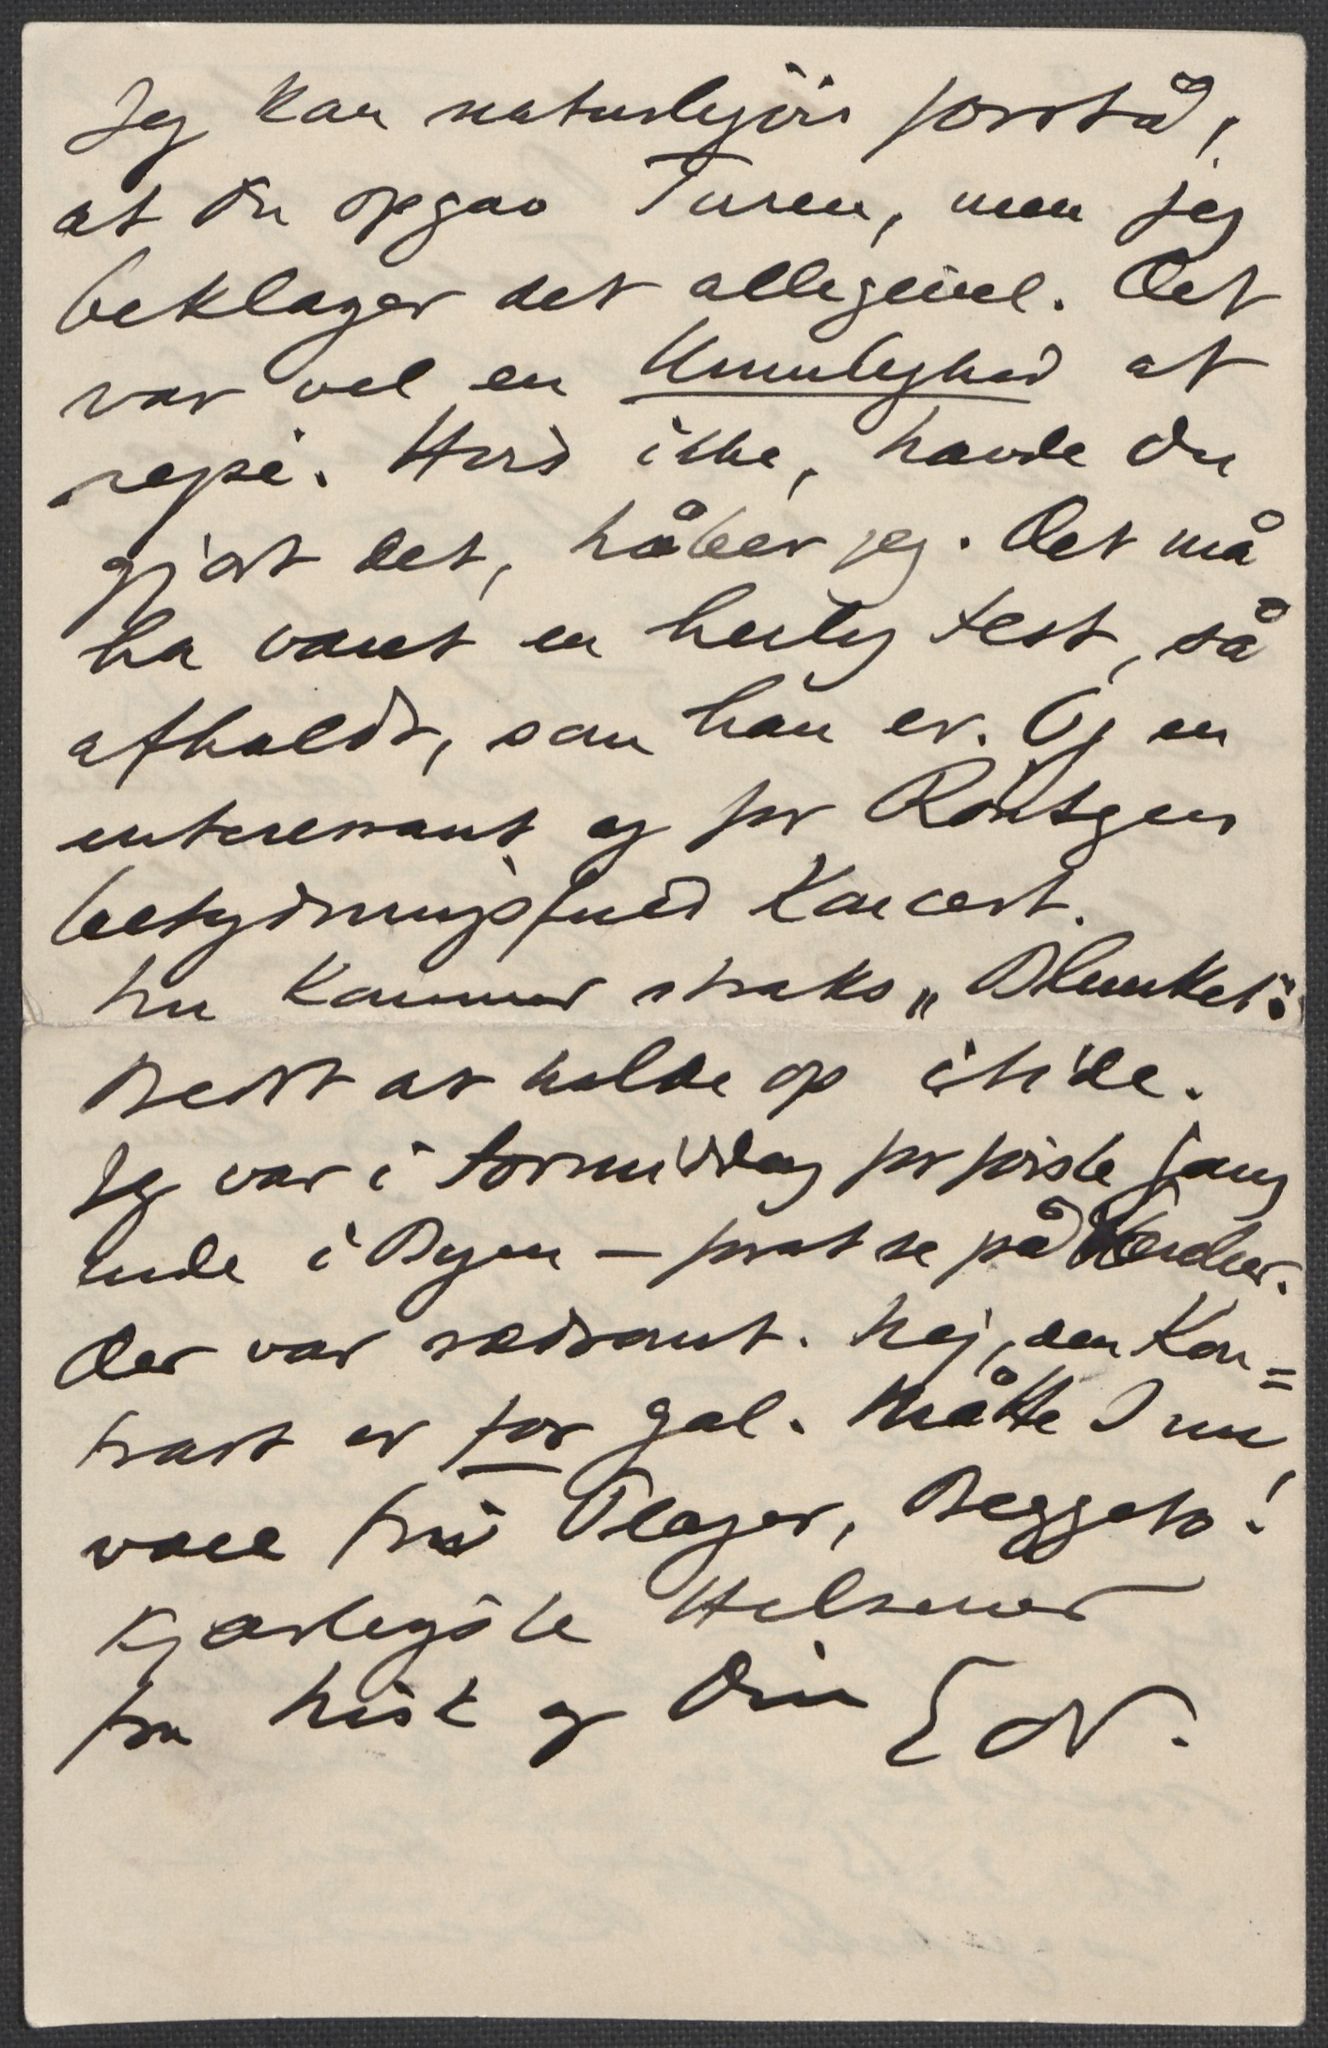 Jeg kan naturligvis forstå,
at Du opgav Turen, men jeg
beklager det alligevel. Det
var vel en Umulighed at
rejse. Hvis ikke, havde Du
gjort det, håber jeg. Det må
ha været en herlig Fest, så
afholdt, som han er. Og en
interessant og for Röntgen
betydningsfuld Koncert.
Nu kommer straks „Blunket":
Bedst at holde op itide.
Jeg var i Formiddag for første Gang
ude i Byen – for at se på
Der var rædsomt. Nej, den Kon=
trast er for gal. Måtte I nu
være fri Plager, Beggeto!
Kjærligste Hilsener
fra Nist og Din